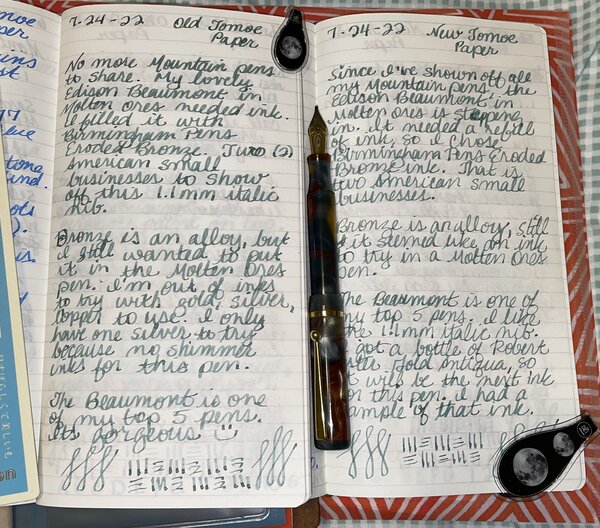 7-24-22 Old Tomoe
Paper
No more Mountain pens
to share. My lovely
Edison Beaumont in
Molten Ores needed ink.
I filled it with
Birmingham Pens
Eroded Bronze. Two (2)
American small
businesses to show
off this 1.1mm italic
nib.
Bronze is an alloy, but
I still wanted to put
it in the Molten Ores
pen. I'm out of inks
to try with gold, silver,
copper to use. I only
have one silver to try
because no shimmer
inks for this pen.
The Beaumont is one
of my top 5 pens.
Its gorgeous
7-24-22 New Tomoe
Paper
Since I've shown off all
my Mountain pens, the
Edison Beaumont in
Molten Ores is stepping
in. It needed a refill
of ink, so I chose
Birmingham Pens Eroded
Bronze ink. That is
two American small
businesses.
Bronze is an alloy, still
it seemed like an ink
to try in a Molten Ores
pen.
The Beaumont is one of
my top 5 pens. I like
the 1.1mm italic nib.
I got a bottle of Robert
Oster Gold Antiqua, so
it will be the next ink
in this pen. I had a
sample of that ink.